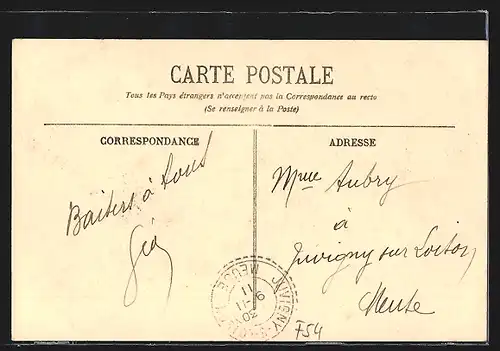 CARTE POSTALE
Tous les Pays étrangers n'acceptent pas la Correspondance au recto
(Se renseigner à la Poste)
CORRESPONDANCE
ADRESSE
Baisers à tous
Mme Aubry
à
Juvigny sur Loison
Meuse
JUVIGNY
MEUSE
F54